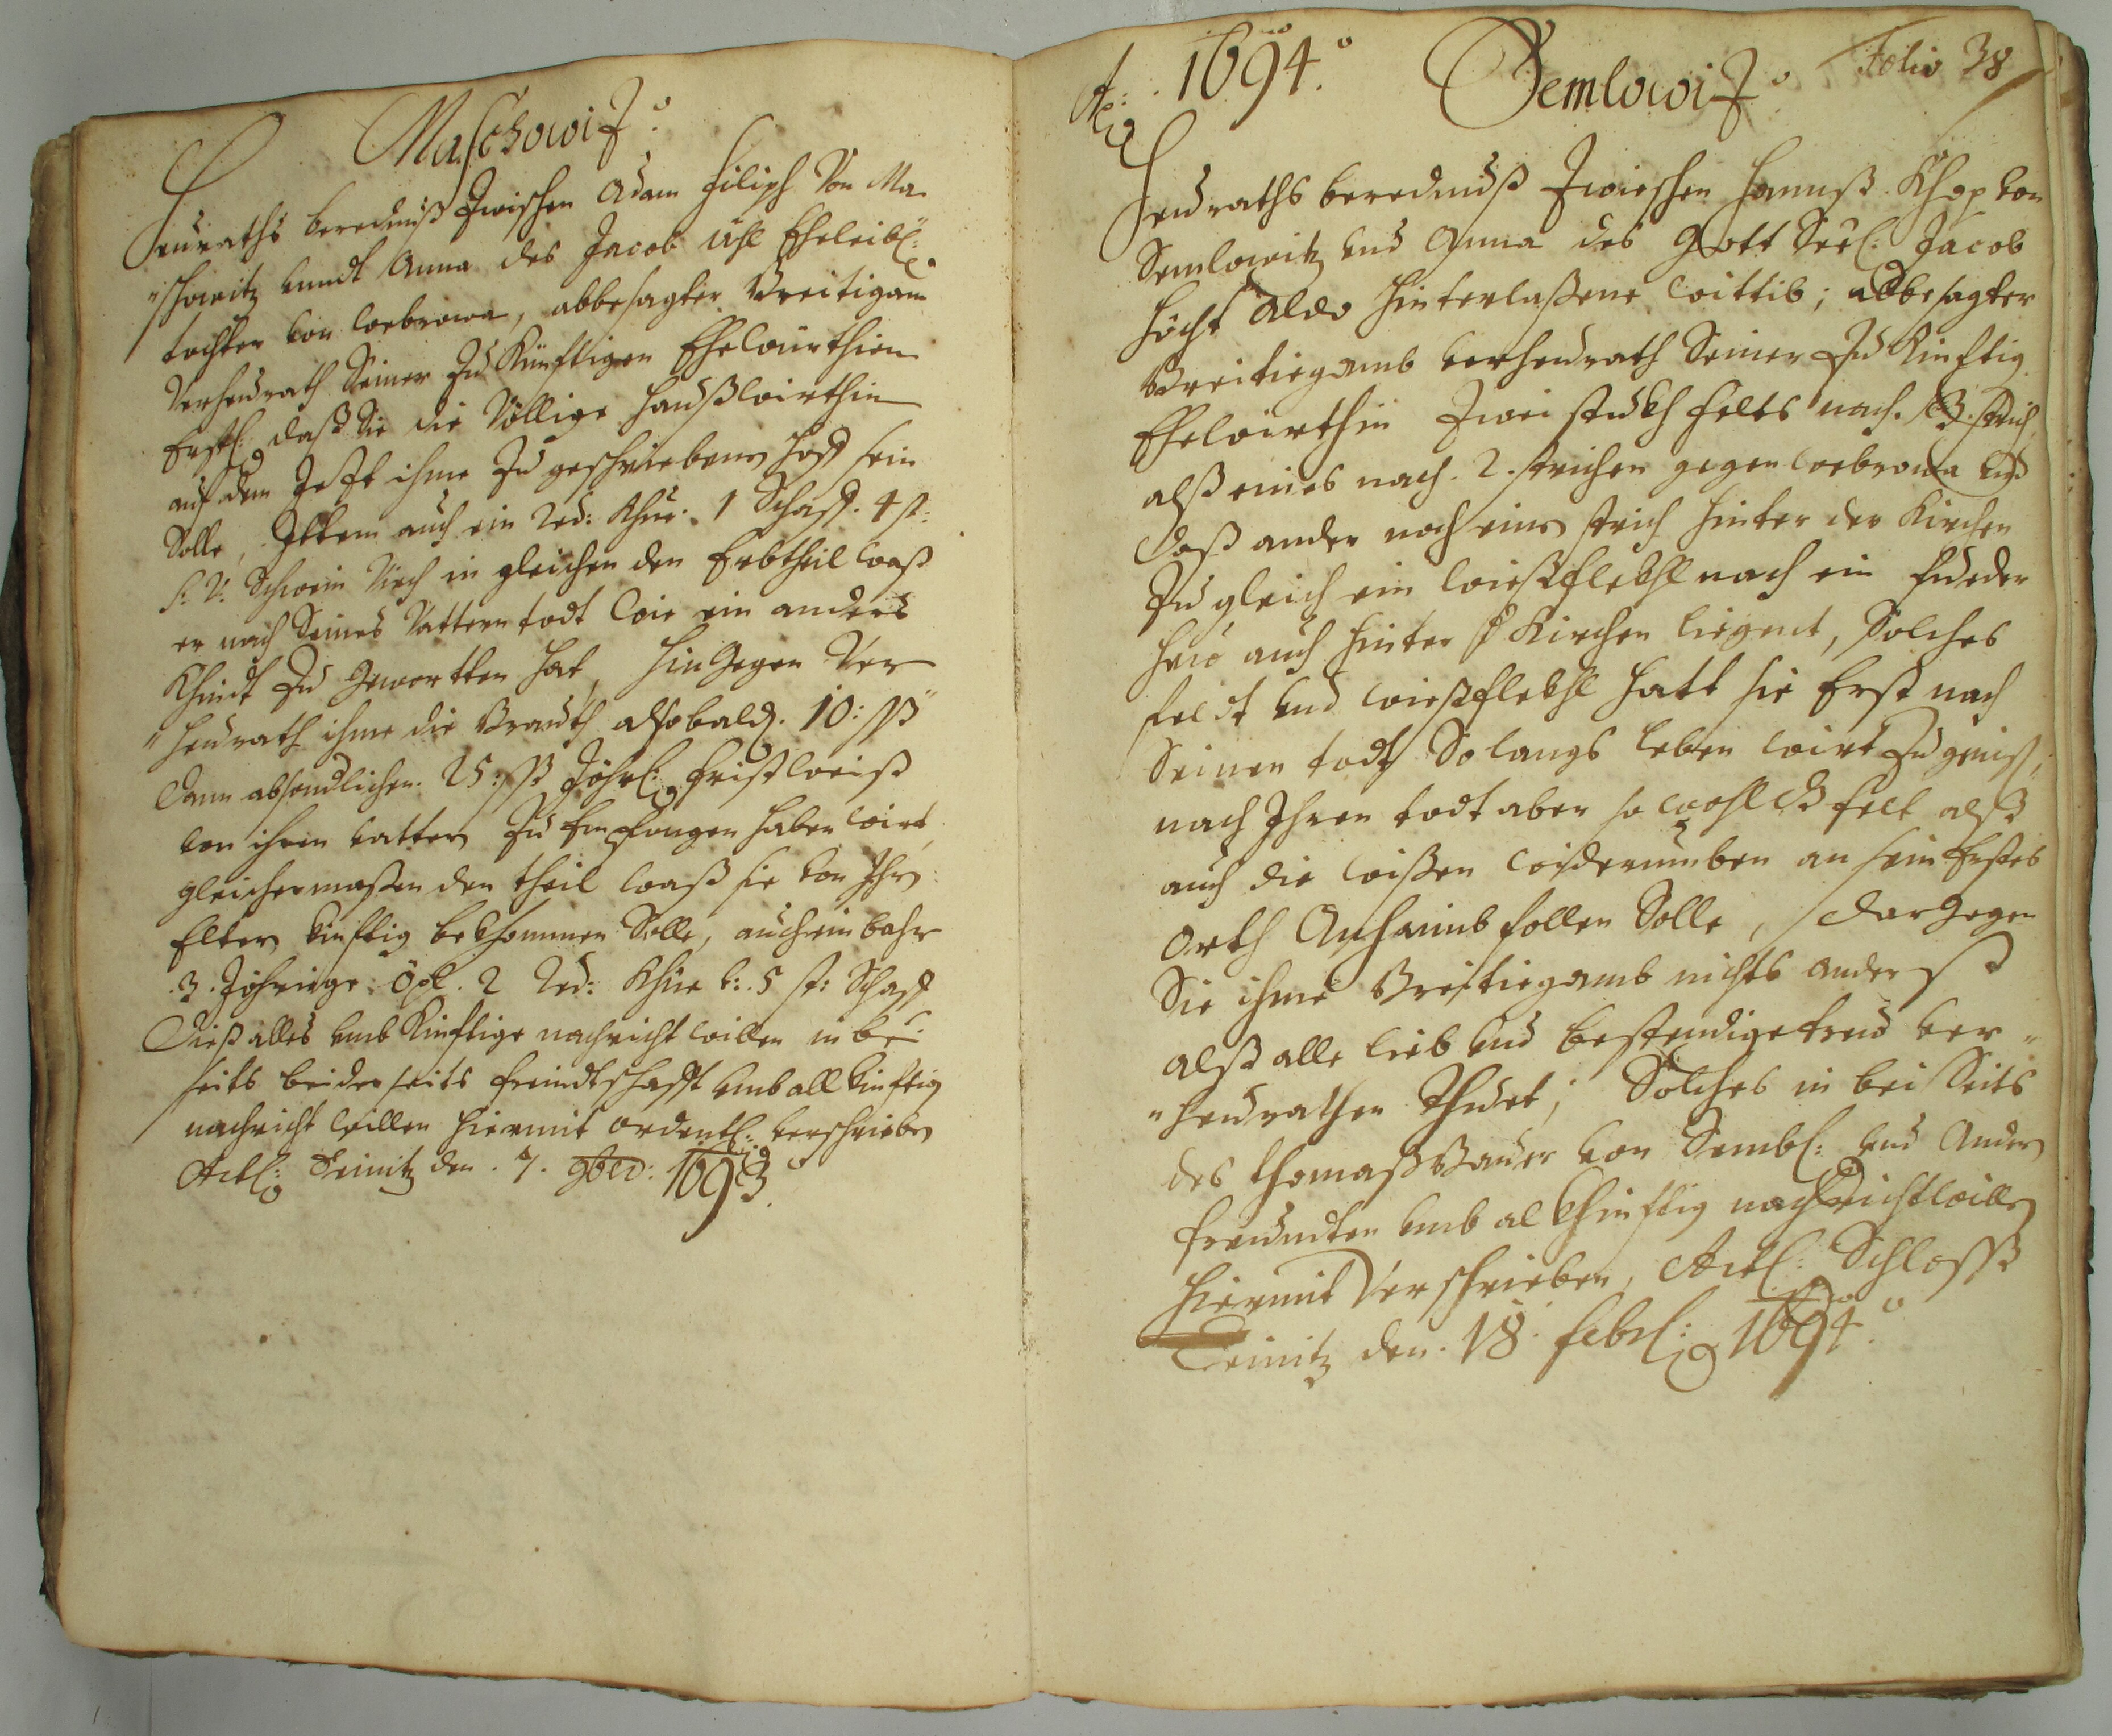 Maschowiz
Heuraths beredtnuß Zwischen Adam Filiph Von Ma
"schowitz unndt Anna des Jacob Uhl Eheleibl:
tochter von Webrowa, abbesagter Breitigam
Verheurath Seiner Zu Künfftigen Ehewürthin
Erstl: daß Sie die Völlige Haußwirthin
auf dem Jezt ihme Zu geschriebenen Hoff sein
Solle, Ittem auch ein Red: Khue. 1 Schaff. 4 st:
S: V: Schwein Viech in gleichen den Erbtheil waß
er nach Seines Vattern todt Wie ein anders
Khindt Zu Gewortten hat, hin Gegen Ver
"heurath ihme die Brauth alsobald. 10: ßß
Dann absondlichen. 25: ßß Jährl: fristweiß
von ihren vatter Zu Empfangen haben wirt,
gleichermaßen den theil waß sie von Ihr
Elter Kinfftig bekhommen Solle, auch ein bahr
.3. Jöhrige Öxl. 2 Red: Khüe u: 5 st: Schaff
Dieß alles umb Kinfftige nachricht willen in bei
seits beiderseits freindtschafft umb all Kinfftig
nachricht willen hiermit ordentl: verschrieben
Actl: Teinitz den . 7. 9ber: 1693.
Ao: 1694. Semlowiz Folio 38
Heuraths beredtnuß Zwieschen Hannß Khop von
Semlowitz und Anna des Gott Seel: Jacob
Höcht Aldo Hinterlaßene Wittib; abbesagter
Breitiegamb verheurath Seiner Zu Kinfftig
Ehewirthin Zwei stukh felts nach. 3. strich
alß eines nach. 2. strichen gegen Webrowa und
daß ander noch eins strich hinter der Kirchen
Zu gleich ein wießflekhl nach ein fueder
heu auch hinter d Kirchen liegent, Solches
feldt und wießflekhl hatt sie Erst nach
Seinen todt So langs leben wirt Zu genißs,
nach Ihren todt aber so wohl dß felt alß
auch die wißen widerumben an sein Erstes
Orth Anheimb fallen Solle, dargegen
Sie ihme Breitiegamb nichts anderß
alß alle lieb und bestendige treu ver"
"heurathen thuet; Solches in bei Seits
des Thomaß Bauer von Sembl: und Andern
freundten umb al Khinfftig nachricht willen
hiermit Verschrieben, Actl: Schloßß
Teinitz den. 18. febrl: 1694.